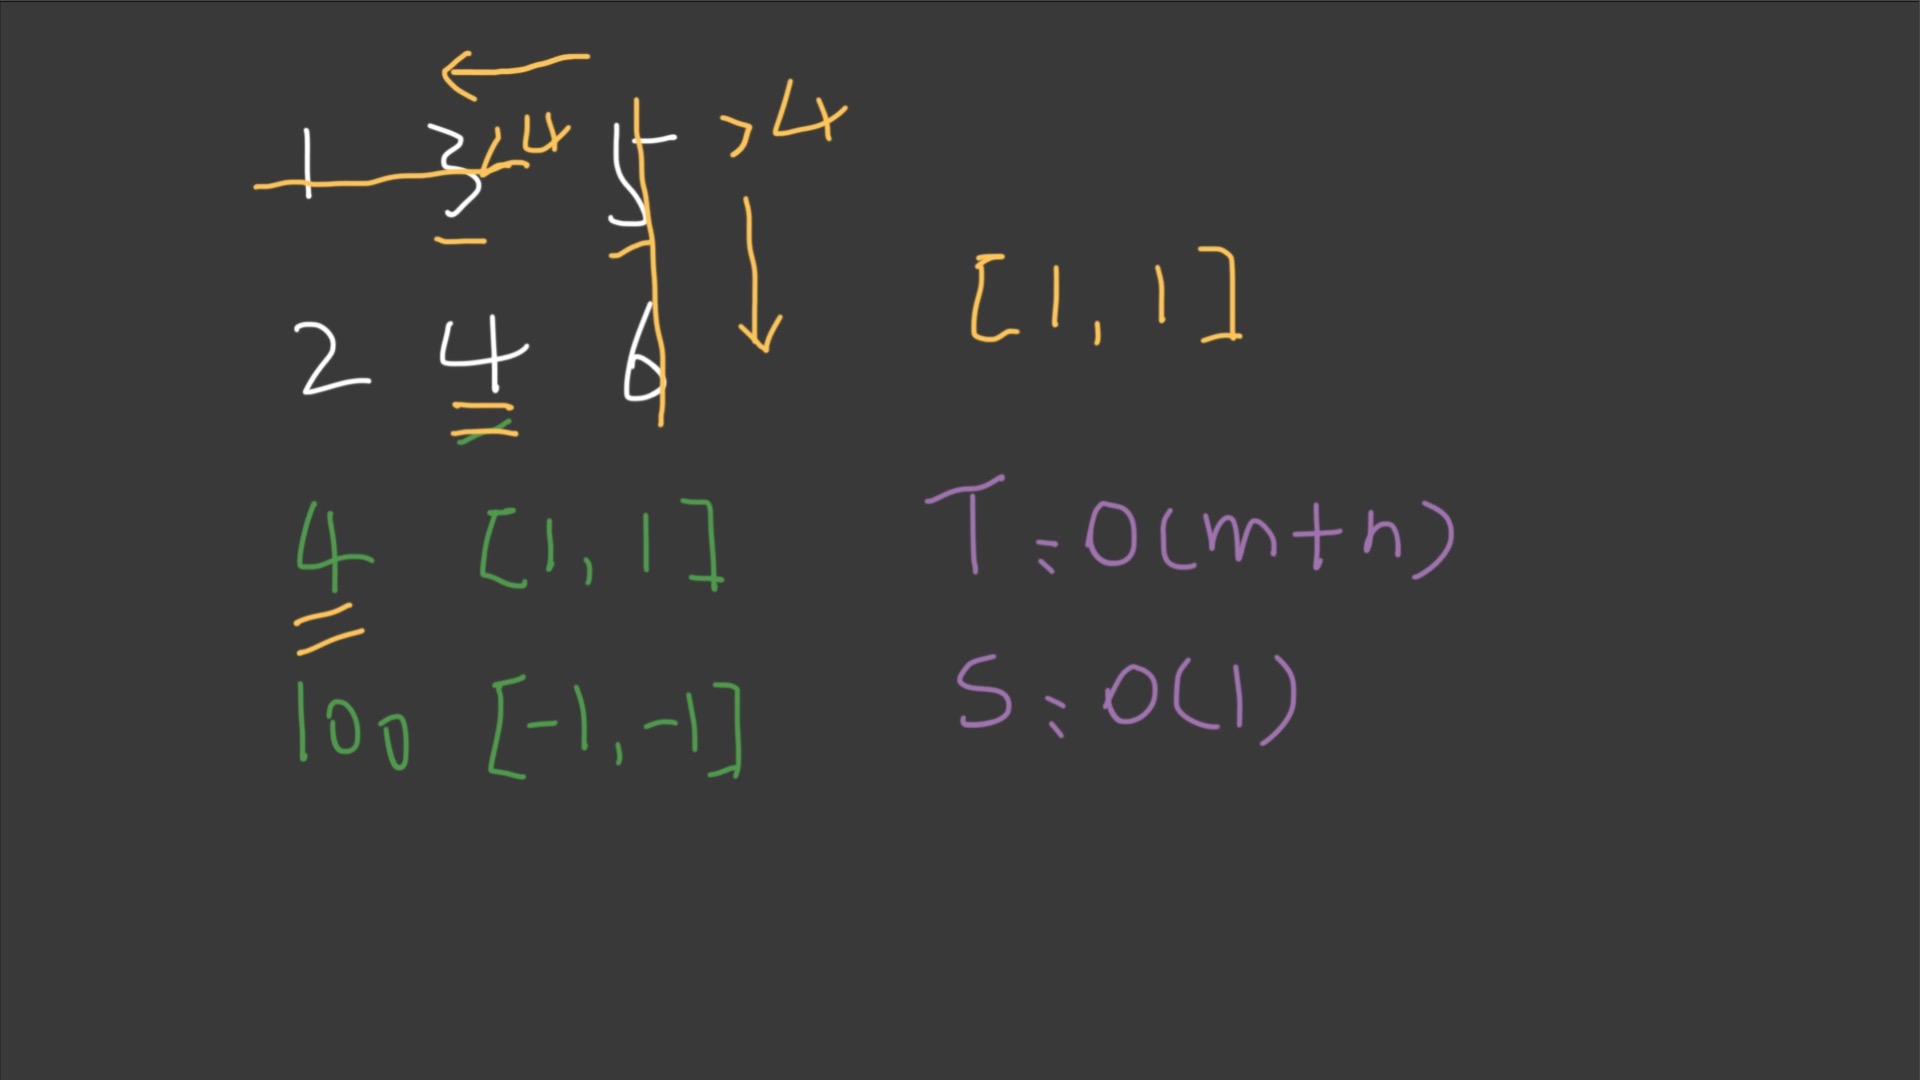 1 3 <4 5 >4
2 4 6
[1, 1]
4 [1, 1]
100 [-1, -1]
T: O(m+n)
S: O(1)